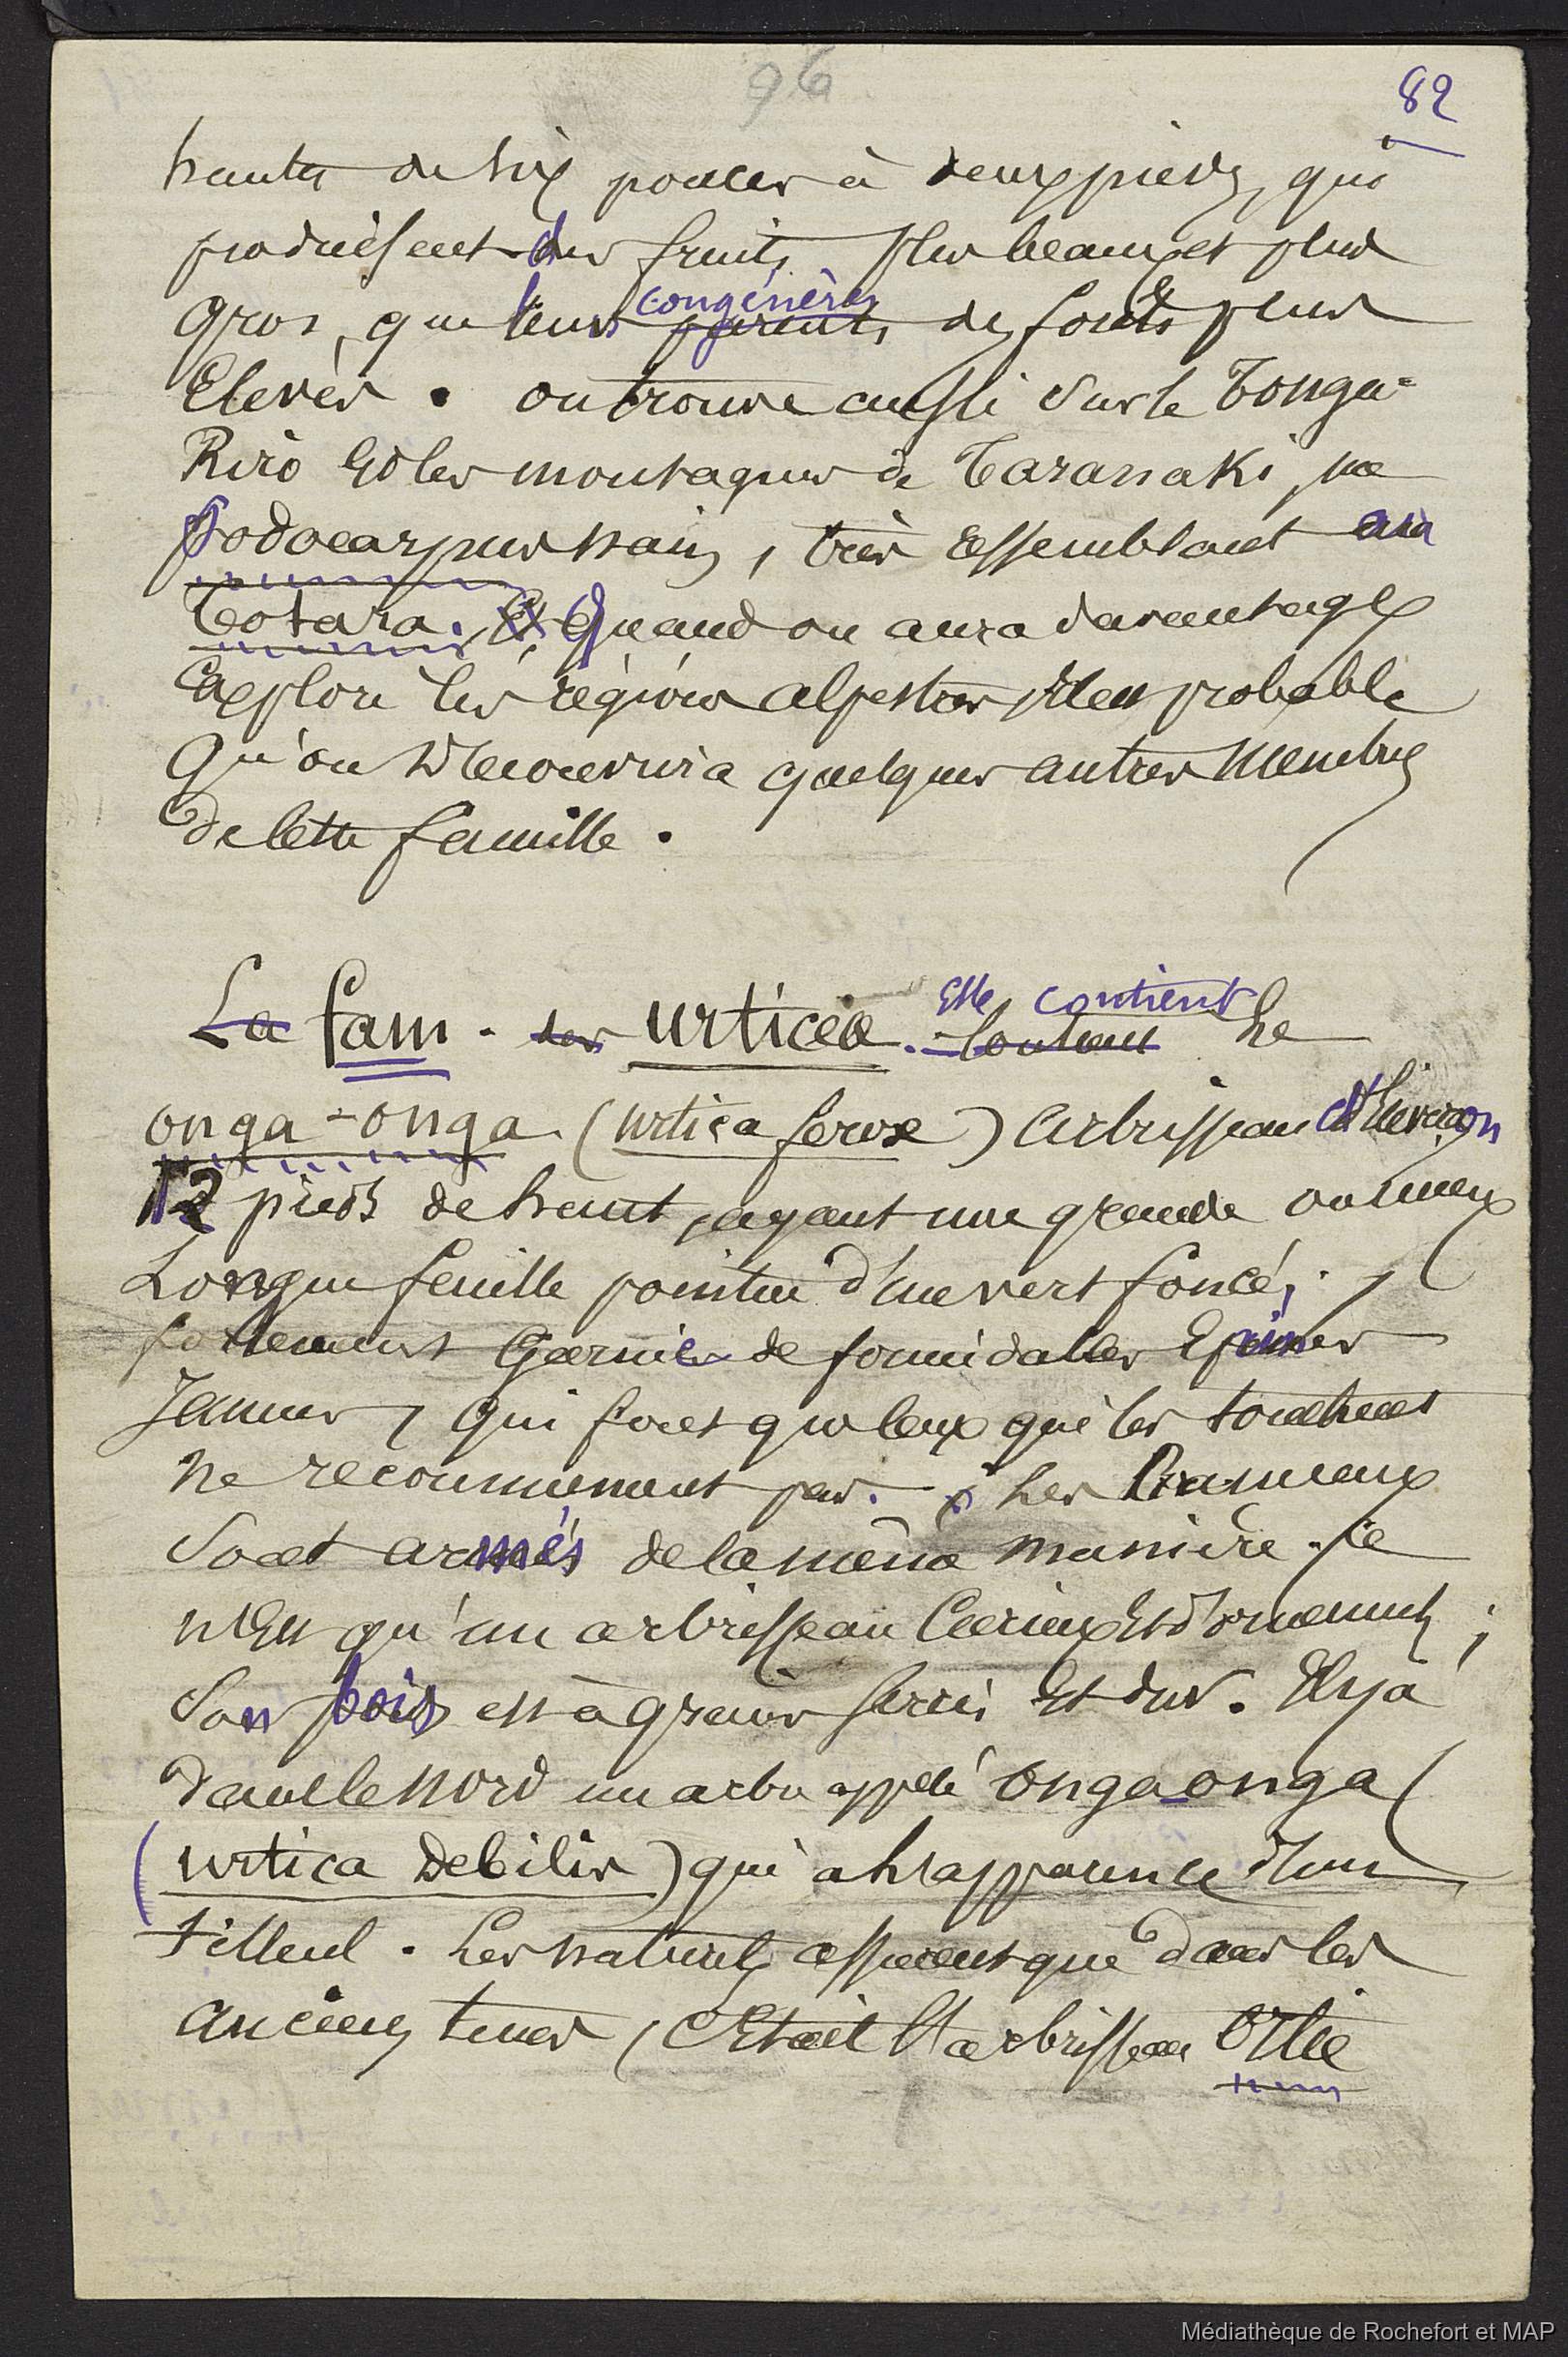 96
82
hautes de six pouces à deux pieds, qui
produisent des fruits plus beaux et plus
gros, que leurs congénères parents des forêts plus
Elevées. on trouve aussi sur le Tonga=
Riro Et les montagnes de Taranaki, un
Podocarpus nain, très ressemblant au
Totara. Et Quand on aura davantage
Exploré les régions alpestres, il est probable
Qu'on Découvrira quelques autres membres
de cette famille.
La fam. des urticea. Elle contient Contient Le
onga-onga (urtica ferox) Arbrisseau d'Environ
12 pieds de haut, ayant une grande ou mieux
Longue feuille pointue d'un vert foncé,
fortement Garnie de formidables Epines
Jaunes, qui font que ceux qui les touchent
ne recommencent pas. Les Rameaux
Sont armés de la même manière. Ce
n'Est qu'un arbrisseau Curieux Et d'ornement;
Son bois est à grain serré Et dur. Il y a
dans le nord un arbre appelé onga-onga
(urtica Debilis) qui a l'apparence d'un
tilleul. Les naturels assurent que dans les
anciens tems, C'Etait l'arbrisseau Ortie
Médiathèque de Rochefort et MAP